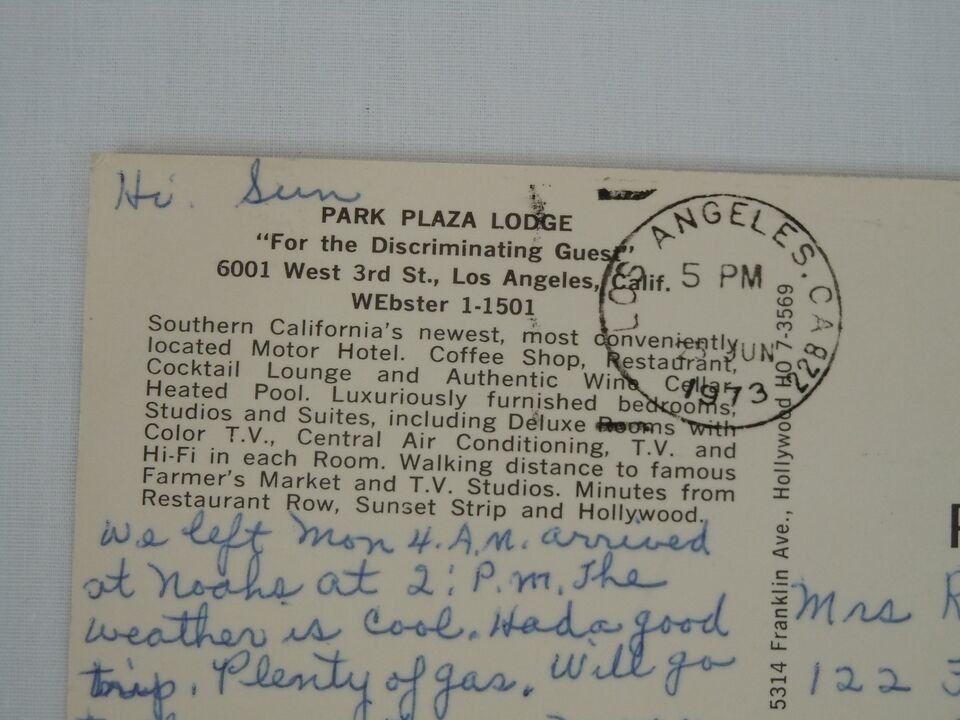 Hi. Sun
PARK PLAZA LODGE
"For the Discriminating Guest"
6001 West 3rd St., Los Angeles, Calif.
WEbster 1-1501
Southern California's newest, most conveniently
located Motor Hotel. Coffee Shop, Restaurant,
Cocktail Lounge and Authentic Wine Cellar,
Heated Pool. Luxuriously furnished bedrooms,
Studios and Suites, including Deluxe Rooms with
Color T.V., Central Air Conditioning, T.V. and
Hi-Fi in each Room. Walking distance to famous
Farmer's Market and T.V. Studios. Minutes from
Restaurant Row, Sunset Strip and Hollywood.
We left Mon 4. A.M. arrived
at Noahs at 2: P.m. The
weather is cool. Had a good
trip. Plenty of gas. Will go
LOS ANGELES. CA 228
5 PM
JUN
1973
5314 Franklin Ave., Hollywood HO 7-3569
Mrs R
122